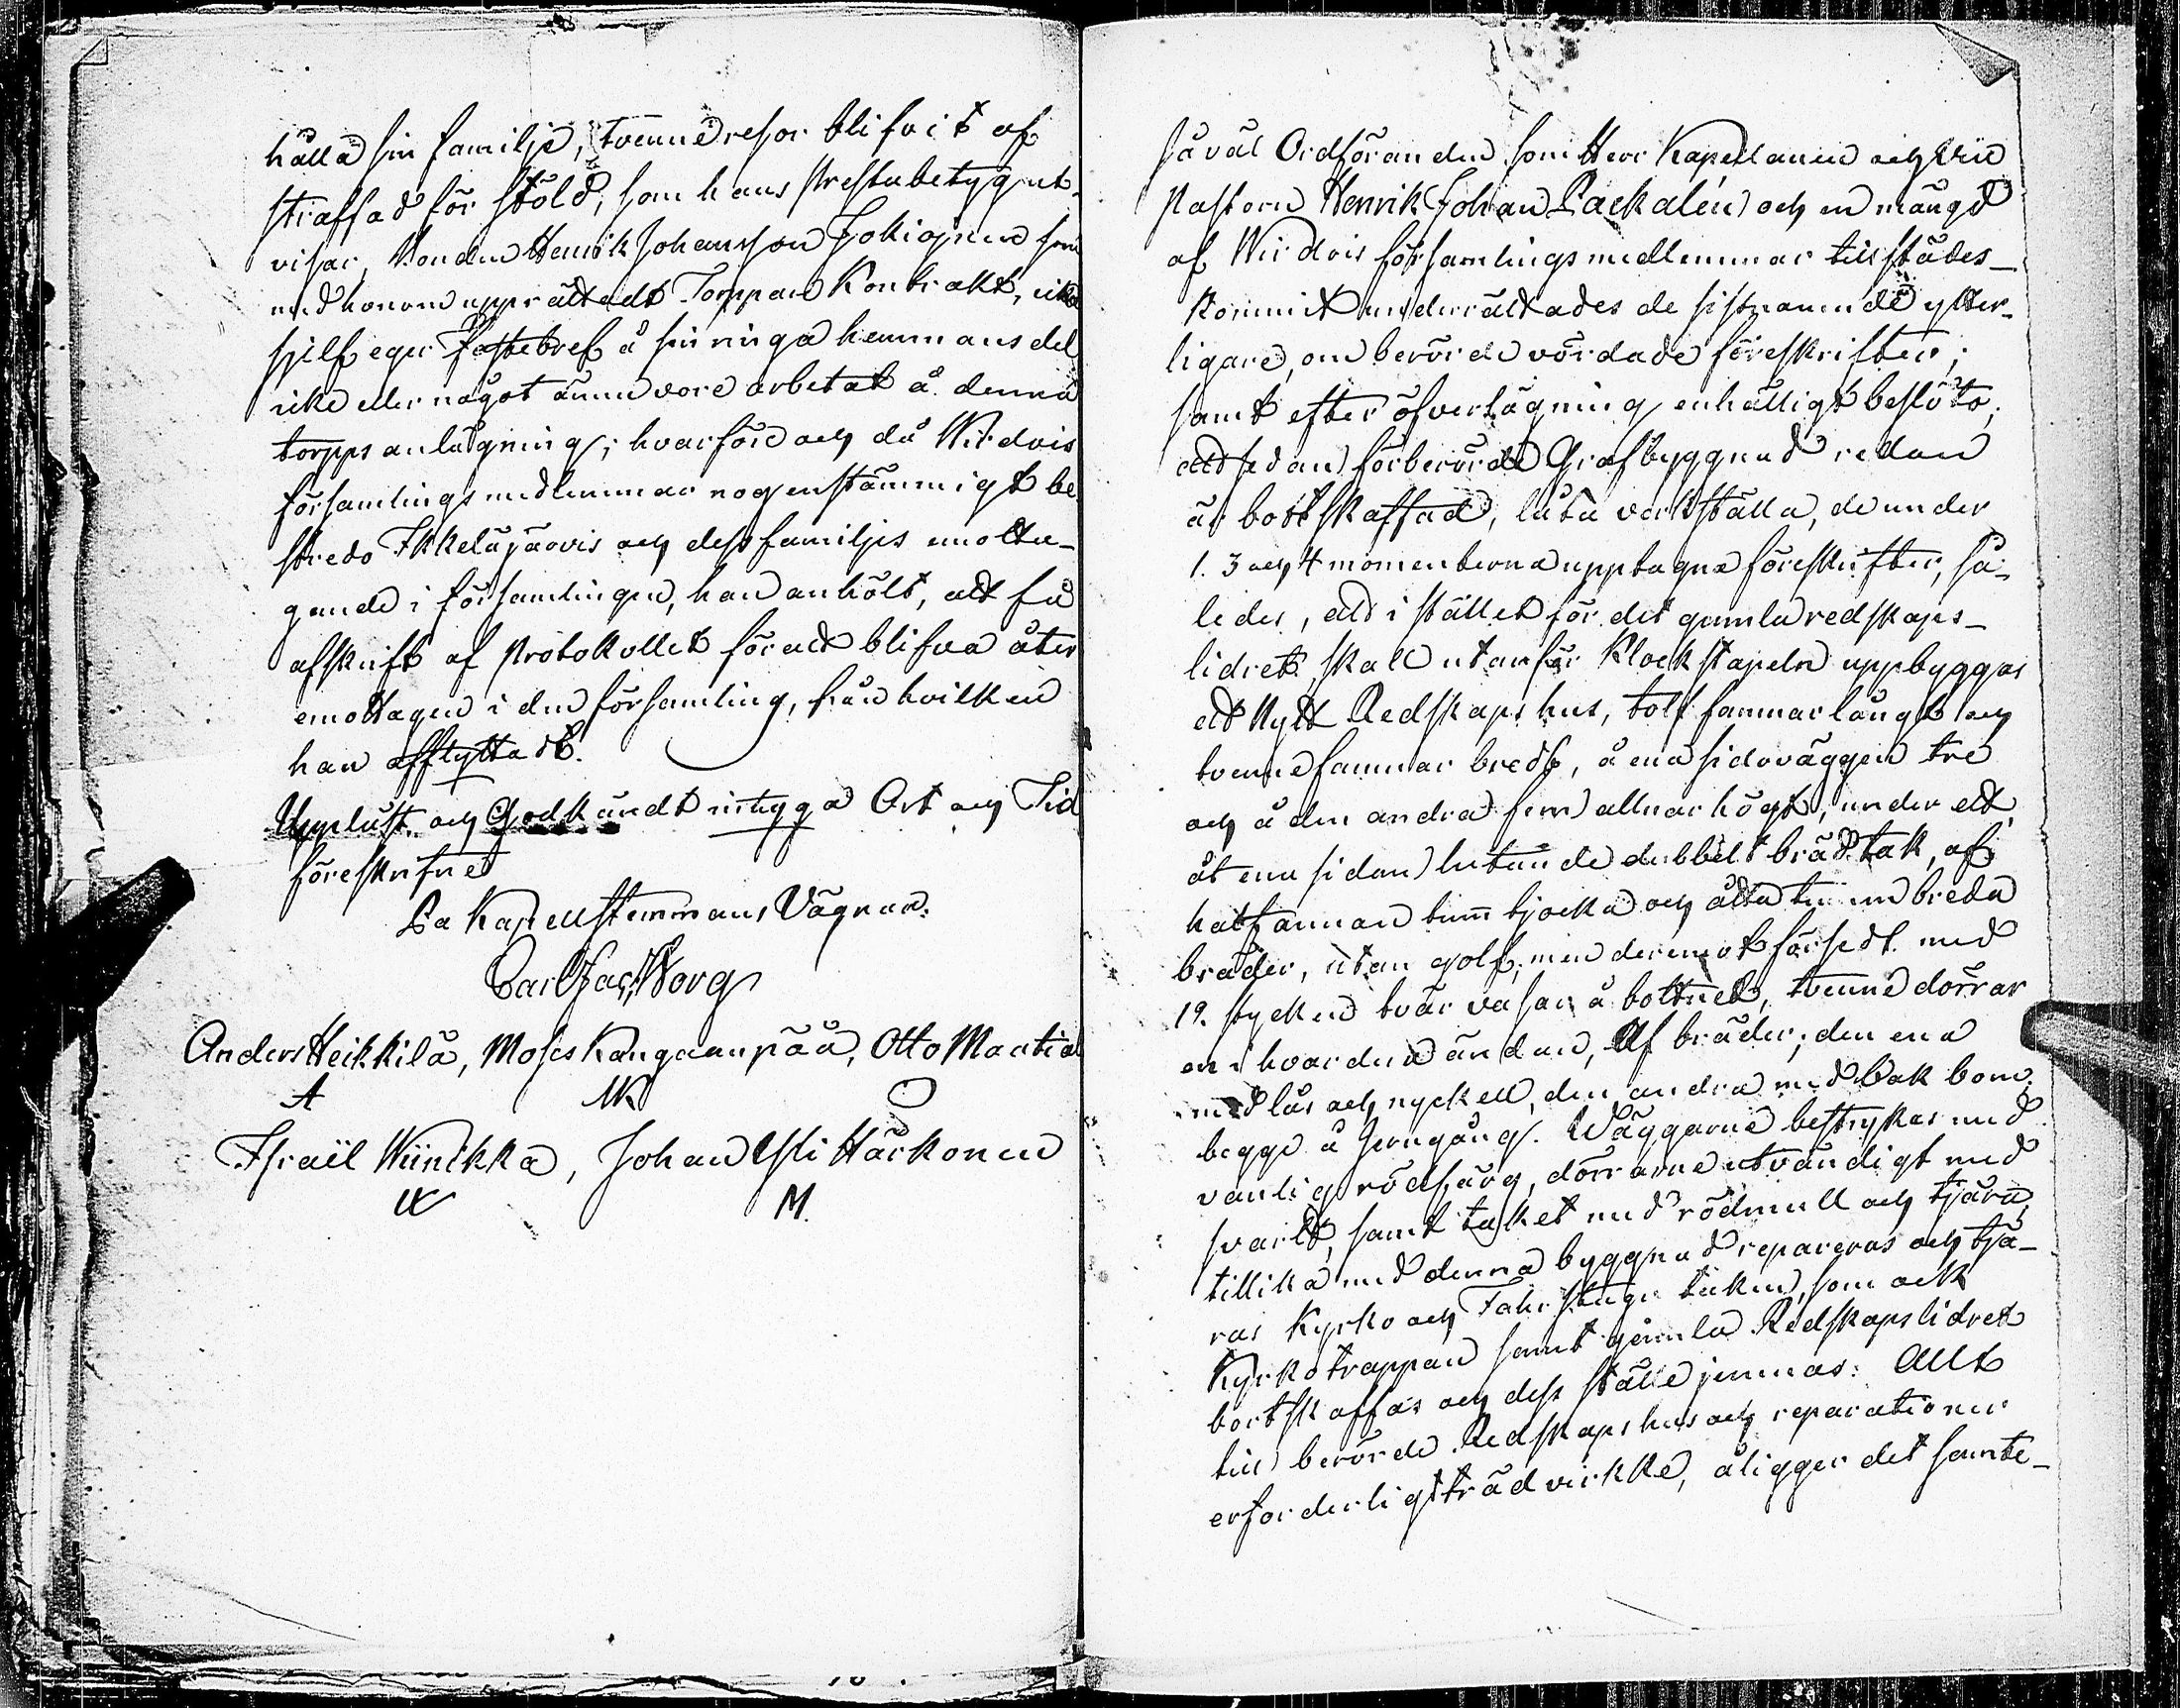 hålla sin familje, tvenne resor blifvit af
straffad för stöld, som hans prestabetyg ut-
visar, Bonden Henrik Johansson Jokiqvinen som
med honom upprättadt Torppare Kontrakt, icke
sjelf eger Fastebref å sin ringa hemmansdel
icke eller något ännu vore arbetat å denna
torpps anlägning; hvarföre och då Wirdois
församlings medlemmar nogenstämmigt be
stredo Ikkeläjärvis och dess familjes emotta-
gande i församlingen, han anhölt, att få
afskrift af Protokollet för att blifva åter
emottagen i den församling, från hvilken
han afflyttadt.
Uppläst och Godkändt intyga Ort och Tid
föreskrifne
På Kapellstemmans Vägnar:
Carl Jac. Borg
Anders Heikkilä, Moses Kangaanpää, Otto Mantila
A MK O
Israël Wiinikka, Johan Yli Härkonen
W M.
såväl Ordföranden som Herr Kapellanen och Vice
Pastorn Henrik Johan Packalén och en mängd
af Wirdois församlings medlemmar tillstädes-
kommit underrättades de sistnämnde ytter-
ligare, om berörde vördade föreskrifter;
samt efter öfverlägning enhälligt beslöto,
att sedan förberörde Grafbyggnad redan
är bortskaffad, låta verkställa, de under
1. 3 och 4 momenterna upptagna föreskrifter, så-
ledes, att i stället för det gamla redskaps-
lidret, skall utanför Klockstapeln uppbyggas
ett Nytt Redskaps hus, tolf famnar långt och
tvenne famnar bredt, å ena sidoväggen tre
och å den andra fem allnar högt, under ett
åt ena sidan lutande dubbelt brädtak, af
halfannan tum tjocka och åtta tum breda
bräder, utan golf, men deremot försedt med
19. stycken tvär vasar å bottnet, tvenne dörrar
en i hvardera ändan, Af bräder; den ena
med lås och nyckell, den andra med bak bom.
begge å Jerngång. Väggarne bestrykes med
vanlig rödfärg, dörrarne utvändigt med
svartt, samt taket med rödmull och tjära
tillika med denna byggnad repareras och tjä-
ras Kyrko och Takustuge taken, som ock
Kyrkotrappan samt gamla Redskapslidret
bortskaffas och dess ställe jemnas: Allt
till berörde Redskaps hus och reparationer
erforderligt trädvirkke, åligger det samte-